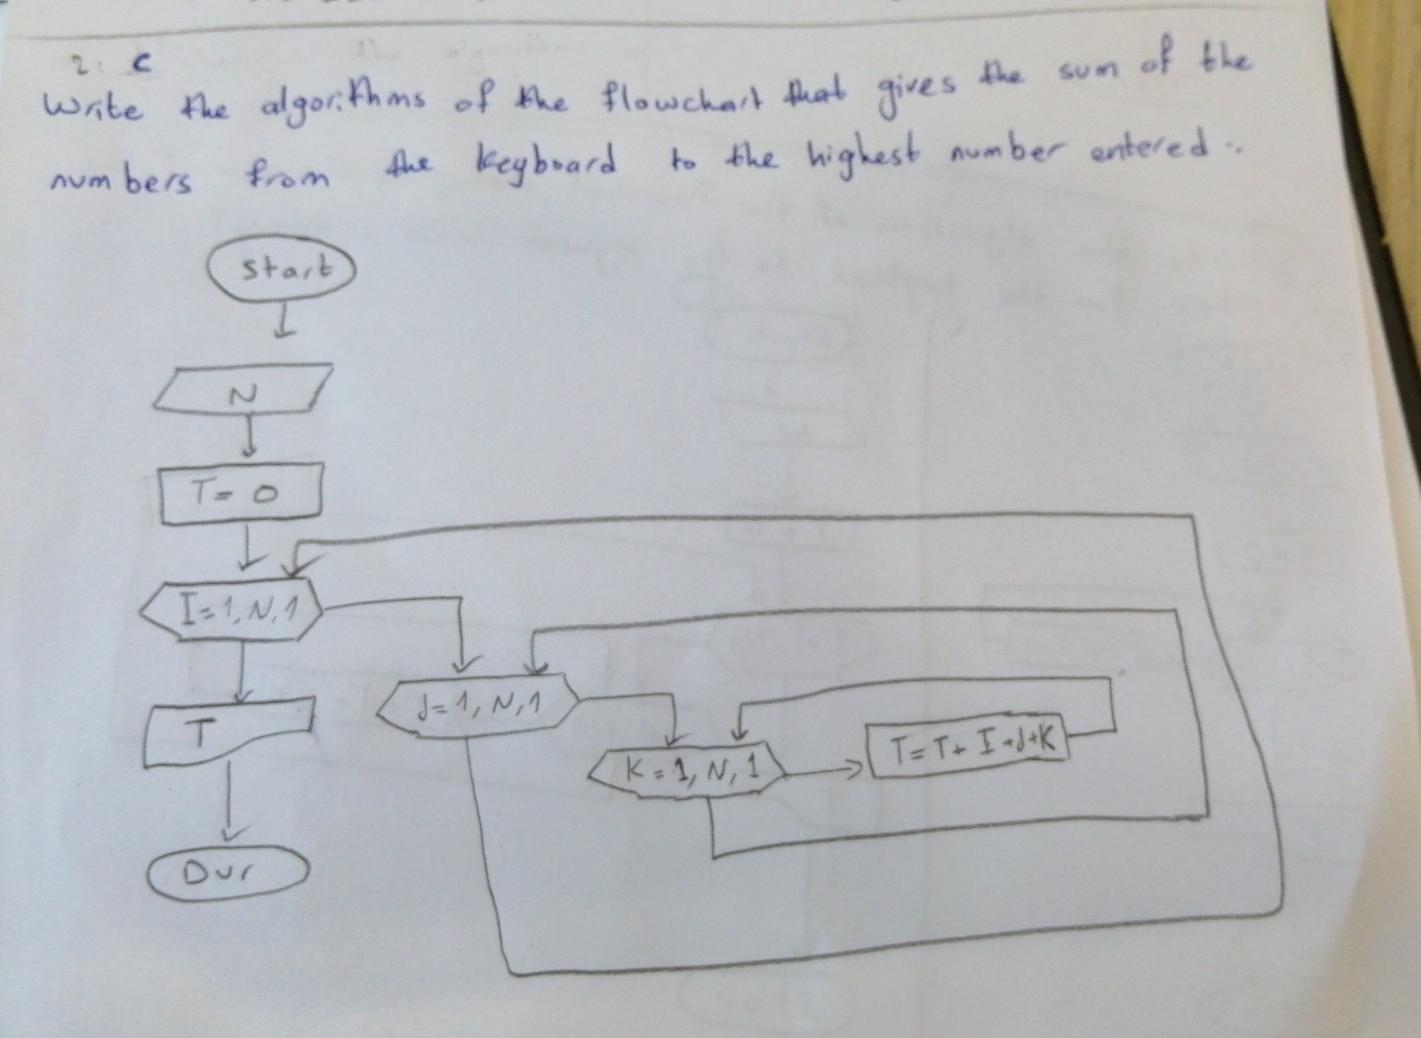 2. c
Write the algorithms of the flowchart that gives the sum of the
numbers from the keyboard to the highest number entered.
Start
N
T = 0
I=1, N, 1
T
J=1, N, 1
K = 1, N, 1
T = T + I + J + K
Dur